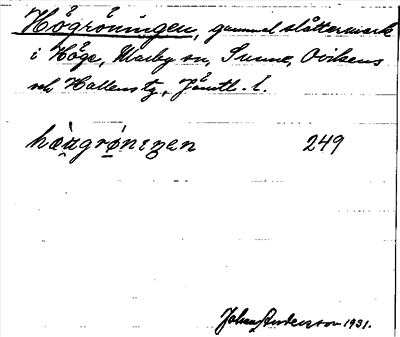 Högröningen, gammal slåttermark
i Höge, Marby sn, Sunne, Ovikens
och Hallens tg, Jämtl. l.
hæu̯grøninen 249
Johan Anderson 1931.